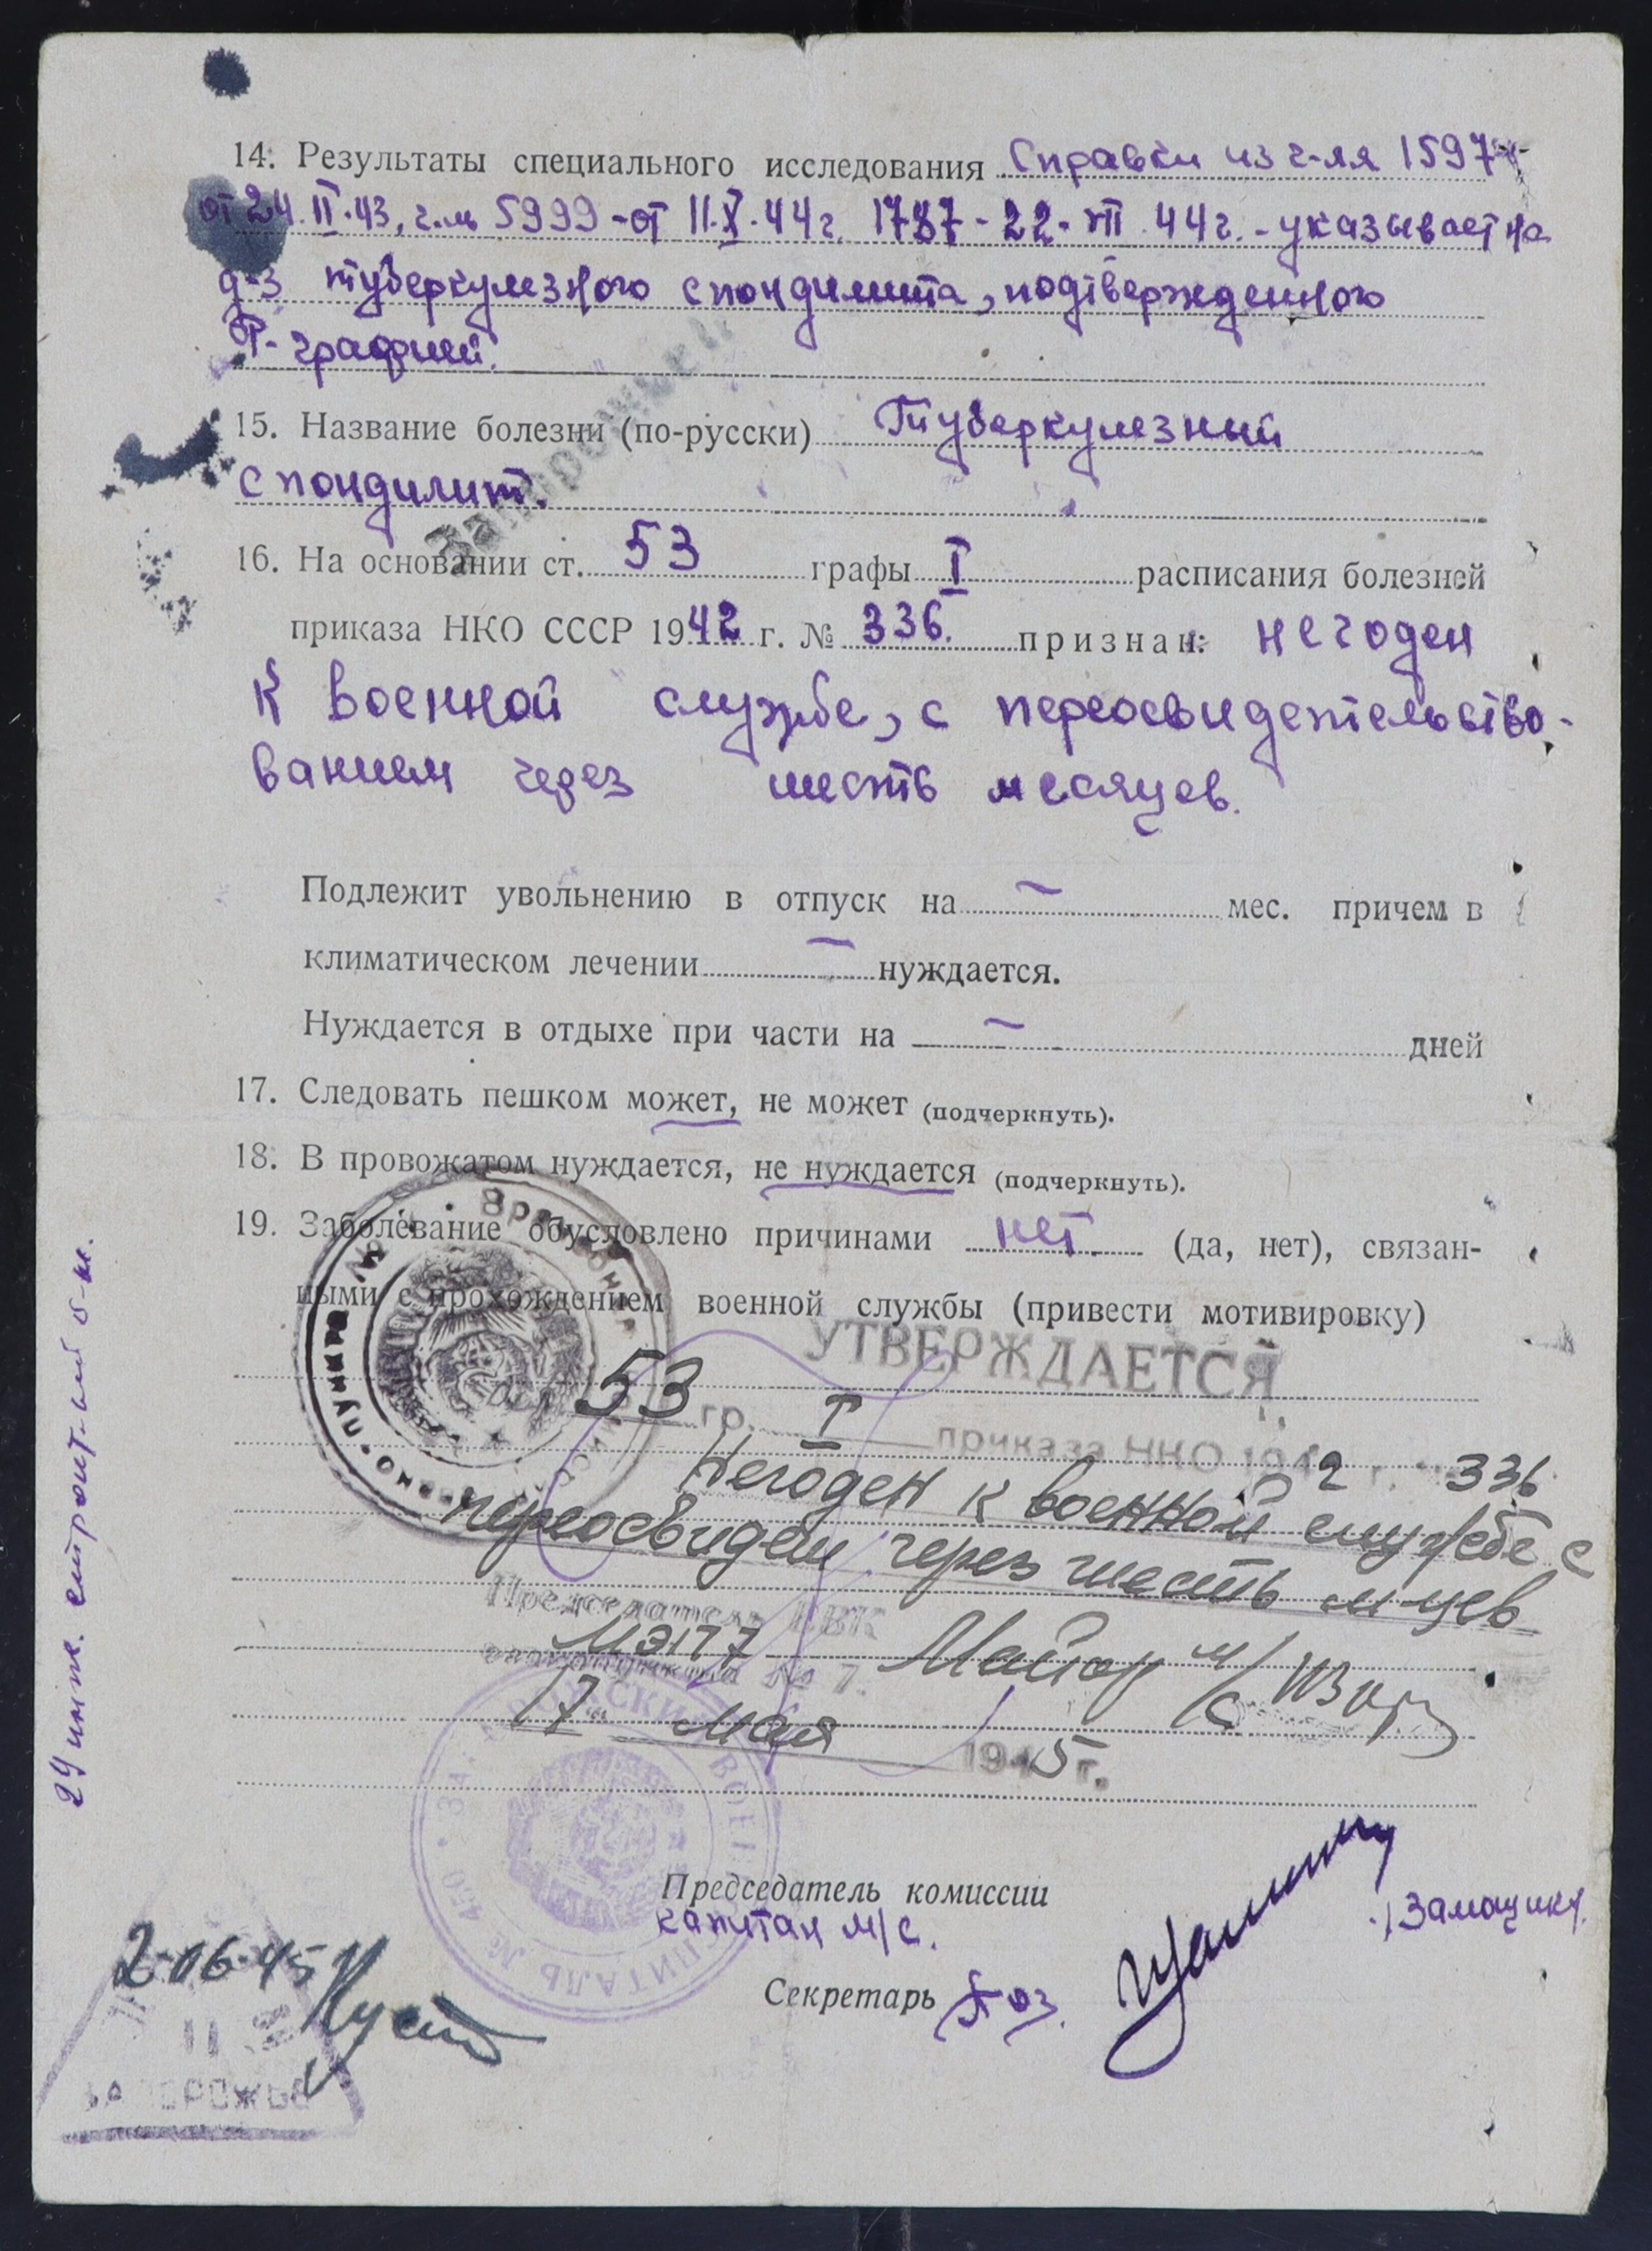 14. Результаты специального исследования Справки из г-ля 1597
от 24.II.43, г-ль 5999 - от 11.X.44г. 1787 - 22. XII 44г. - указывает на
д-з туберкулезного спондилита, подтвержденного
Р-графией.
15. Название болезни (по-русски) Туберкулезный
спондилит.
16. На основании ст. 53 графы I расписания болезней
приказа НКО СССР 1942 г. № 336. признан: негоден
к военной службе, с переосвидетельство-
ванием через шесть месяцев.
Подлежит увольнению в отпуск на — мес. причем в
климатическом лечении — нуждается.
Нуждается в отдыхе при части на — дней
17. Следовать пешком может, не может (подчеркнуть).
18. В провожатом нуждается, не нуждается (подчеркнуть).
19. Заболевание обусловлено причинами нет (да, нет), связан-
ными с прохождением военной службы (привести мотивировку)
УТВЕРЖДАЕТСЯ
53 гр. I приказа НКО 1942 г. 336
Негоден к военной службе с
переосвидет через шесть м-цев
Председатель ВВК
МЭП 7 Майор м/с
эвакопункта № 7.
17 мая 1945 г.
Председатель комиссии
капитан м/с.
Секретарь
2-06-45
ЗАПОРОЖЬЕ
ГОСПИТАЛЬ №
24 инж.